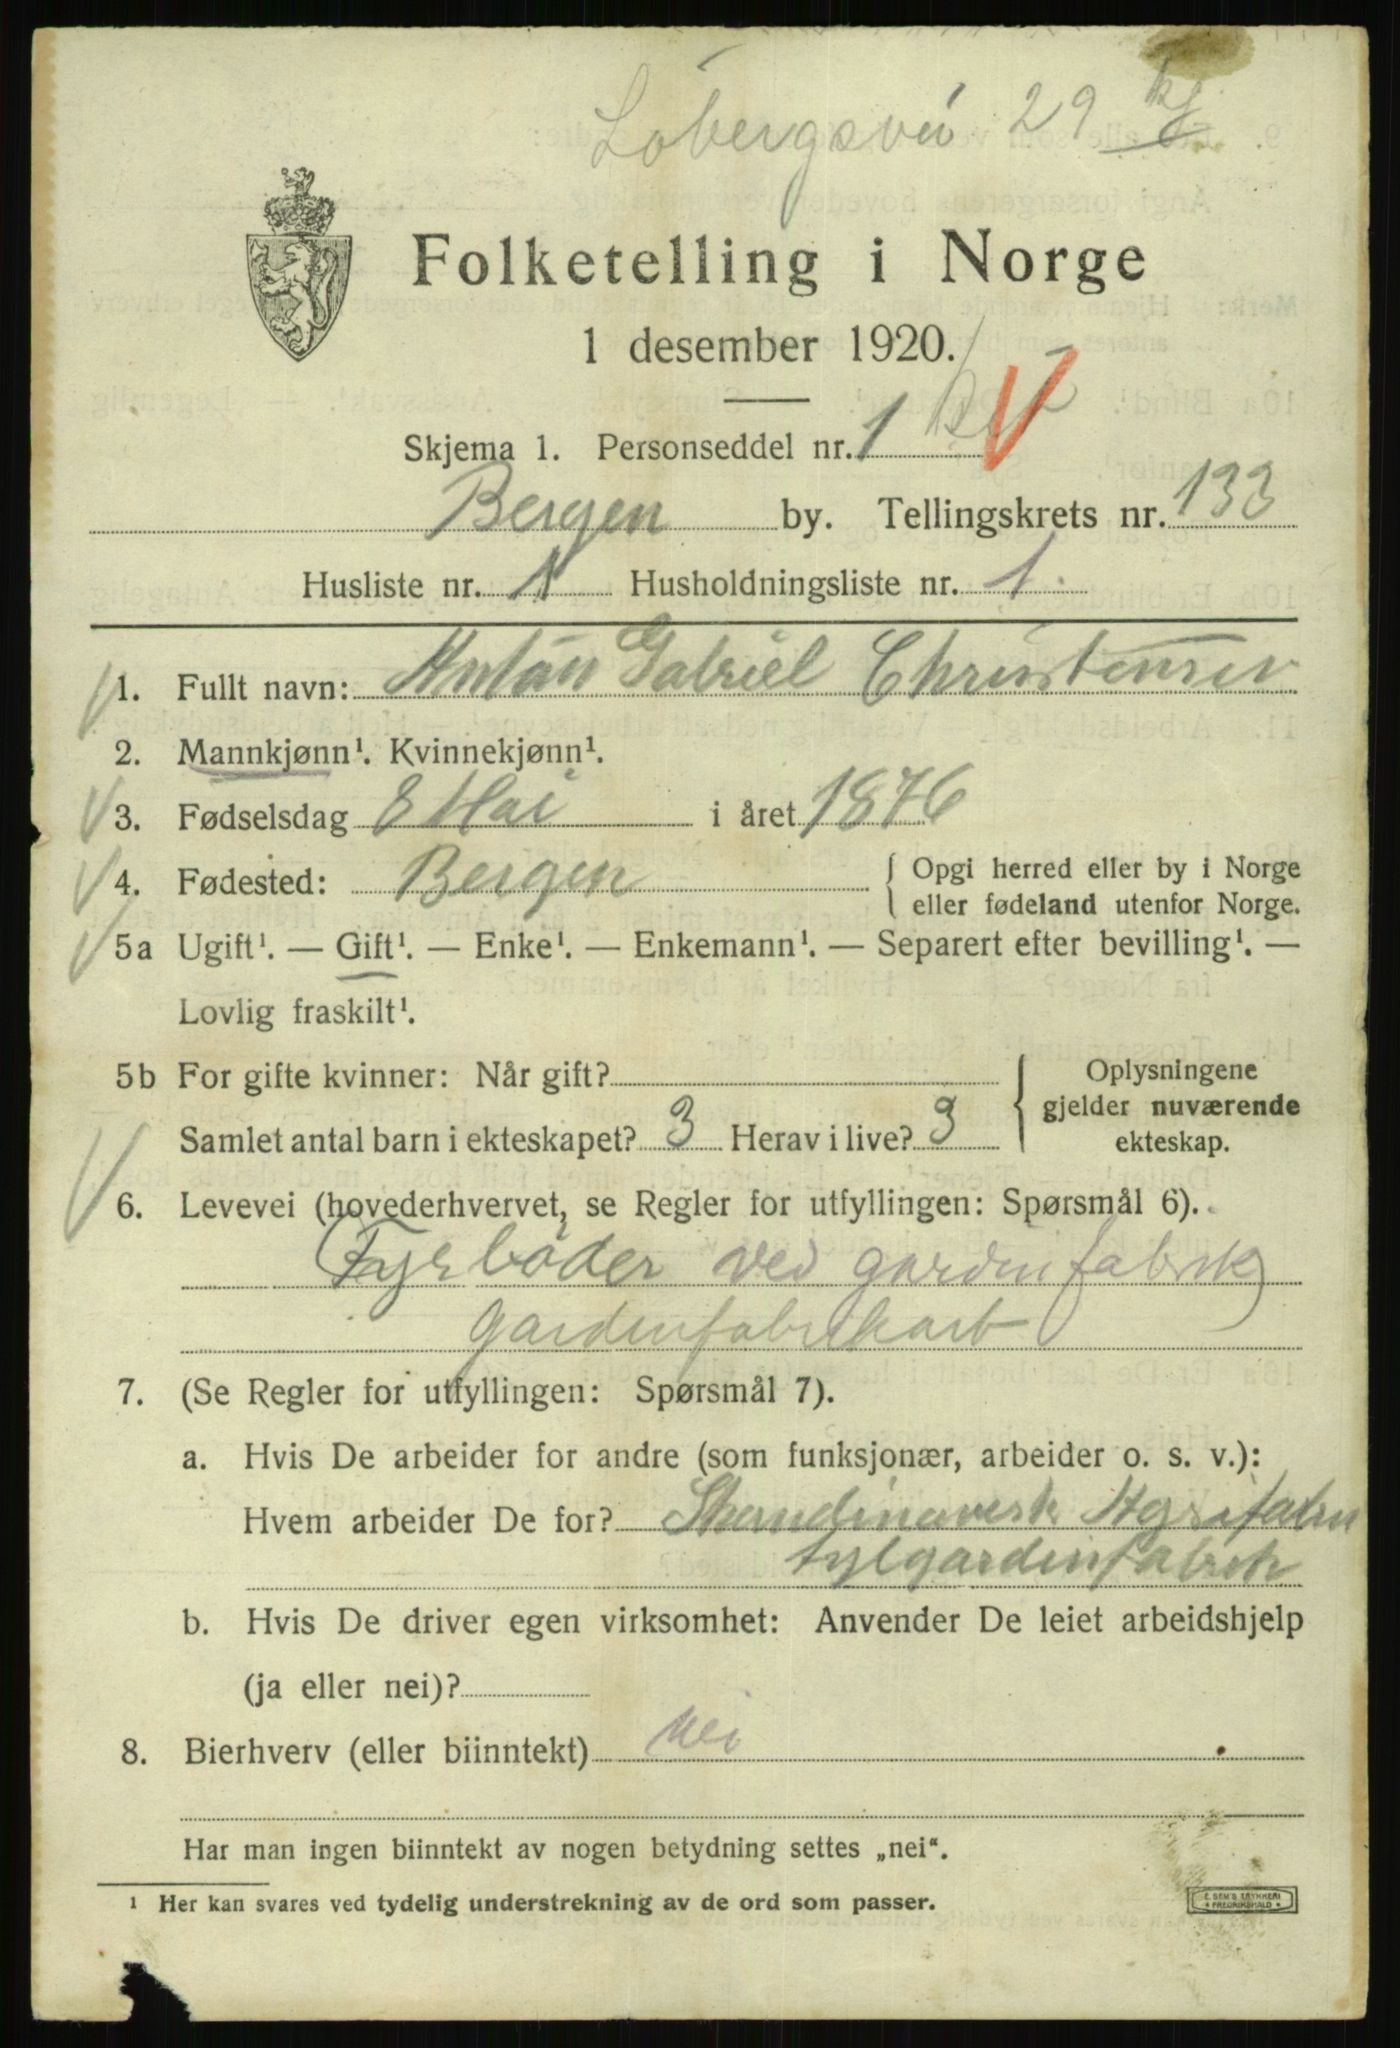 Løbergsvei 29
Folketelling i Norge
1 desember 1920.
Skjema 1. Personseddel nr. 1
Bergen by. Tellingskrets nr. 133
Husliste nr. 1 Husholdningsliste nr. 1.
1. Fullt navn: Anton Gabriel Christensen
2. Mannkjønn¹. Kvinnekjønn¹.
3. Fødselsdag 8 Mai i året 1876
4. Fødested: Bergen { Opgi herred eller by i Norge
eller fødeland utenfor Norge.
5a Ugift¹. — Gift¹. — Enke¹. — Enkemann¹. — Separert efter bevilling¹. —
Lovlig fraskilt¹.
5b For gifte kvinner: Når gift?
Samlet antal barn i ekteskapet? 3 Herav i live? 3
{ Oplysningene
gjelder nuværende
ekteskap.
6. Levevei (hovederhvervet, se Regler for utfyllingen: Spørsmål 6).
(Fyrbøder ved gardinfabrik)
gardinfabrikarb
7. (Se Regler for utfyllingen: Spørsmål 7).
a. Hvis De arbeider for andre (som funksjonær, arbeider o. s. v.):
Hvem arbeider De for? Skandinavisk
tylgardinfabrik
b. Hvis De driver egen virksomhet: Anvender De leiet arbeidshjelp
(ja eller nei)?
8. Bierhverv (eller biinntekt) nei
Har man ingen biinntekt av nogen betydning settes „nei“.
¹ Her kan svares ved tydelig understrekning av de ord som passer.
E. SEM'S TRYKKERI
FREDRIKSHALD